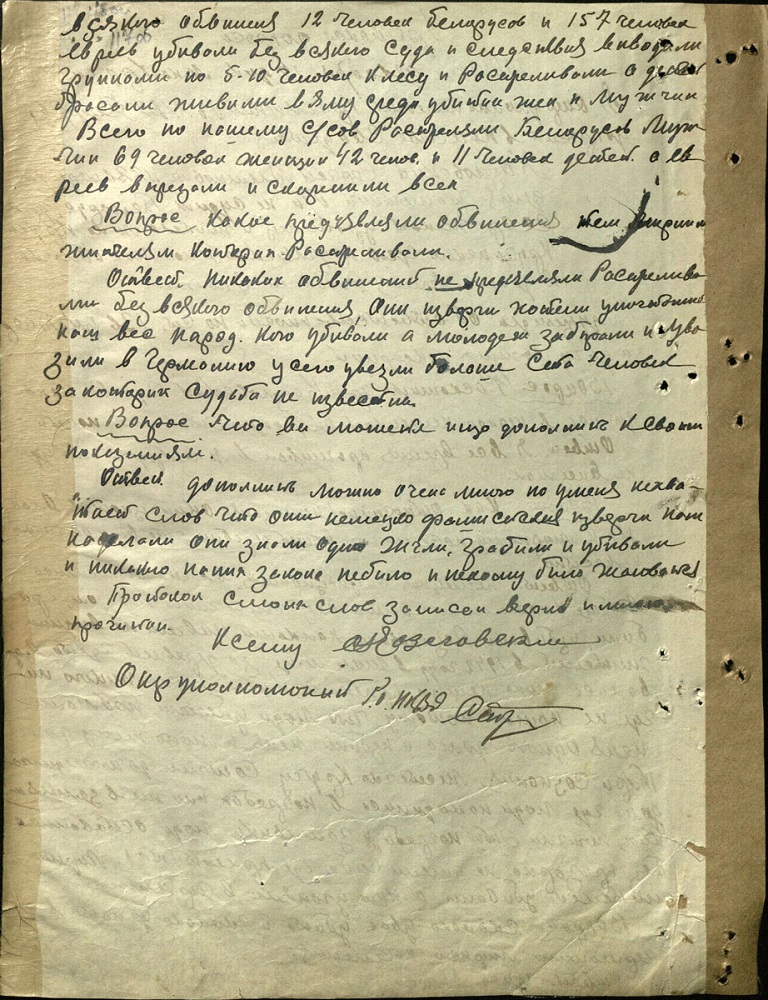 всякого обвинения 12 человек беларусов и 157 человек
евреев убивали без всякого суда и следствия выводили
группами по 5-10 человек к лесу и Расстреливали а детей
бросали живыми в яму среди убитых жен и мужчин
Всего по нашему с/сов Расстреляли Беларусов Муж
чин 69 человек женщин 42 челов. и 11 человек детей. а ев
реев вырезали и всех
Вопрос Какое предъявляли обвинения тем мирным
жителям которых Расстреливали.
Ответ. Никаких обвинений не предъявляли Расстрелива
ли без всякого обвинения, Они изверги хотели уничтожить
наш весь народ. Кого убивали а молодежь забирали и уво
зили в Германию у сего увезли больше Ста человек
за которых судьба не известна.
Вопрос Что вы можете ищо дополнить к своим
показаниям.
Ответ. дополнить можно очень много но у меня нехва-
таест слов что они немецко фашиские изверги нам
наделали они знали одно жгли, грабили и убивали
и никакого нания закона небыло и некому было жаловатся
Протокол с моих слов записан верно и мною
прочитан.
К сему
Опер уполномоченный Р.о. НКВД